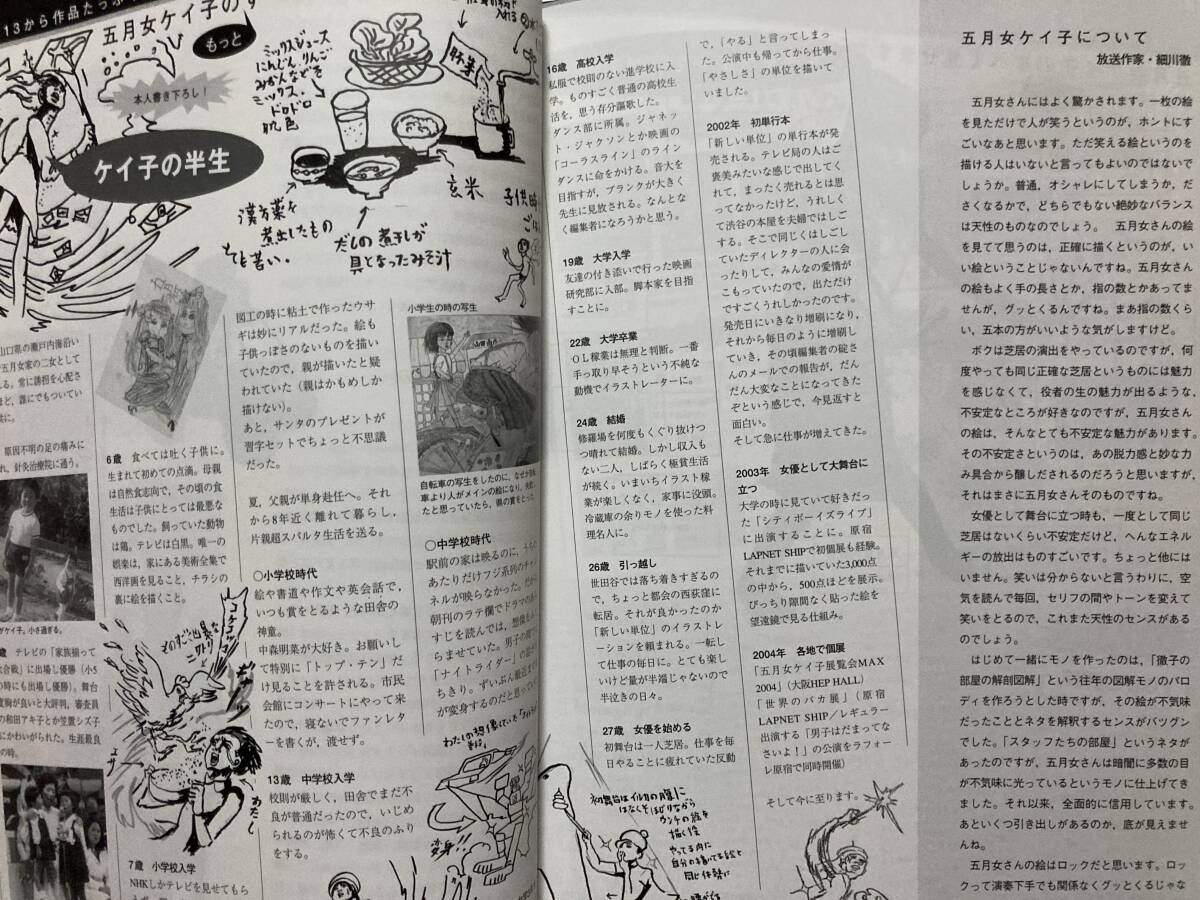 13から作品たっぷ
五月女ケイ子のす
もっと
本人書き下ろし！
ケイ子の半生
ミックスジュース
にんじん りんご
みかんなどを
ミックス・
ドロドロ
肌色
入れる
玄米
漢方薬を
煮出したもの
とても苦い．
だしの煮干しが
具となったみそ汁
山口県の瀬戸内海沿い
五月女家の二女として
る。常に誘拐を心配さ
ほど，誰にでもついてい
供に。
原因不明の足の痛みに
れ，針灸治療院に通う。
がケイ子。小さ過ぎる。
テレビの「家族揃って
合戦」に出場し優勝（小5
の時にも出場し優勝）。舞台
度胸が良いと大評判。審査員
の和田アキ子とか笠置シズ子
にかわいがられた。生涯最良
の時。
6歳　食べては吐く子供に。
生まれて初めての点滴。母親
は自然食志向で，その頃の食
生活は子供にとっては最悪な
ものでした。飼っていた動物
は鶏。テレビは白黒。唯一の
娯楽は，家にある美術全集で
西洋画を見ること，チラシの
裏に絵を描くこと。
ものすごく凶暴な
ニワトリ
コケコッコー
わたし
7歳　小学校入学
NHKしかテレビを見せてもら
図工の時に粘土で作ったウサ
ギは妙にリアルだった。絵も
子供っぽさのないものを描い
ていたので，親が描いたと疑
われていた（親はかもめしか
描けない）。
あと，サンタのプレゼントが
習字セットでちょっと不思議
だった。
夏，父親が単身赴任へ。それ
から8年近く離れて暮らし，
片親超スパルタ生活を送る。
○小学校時代
絵や書道や作文や英会話で，
いつも賞をとるような田舎の
神童。
中森明菜が大好き。お願いし
て特別に「トップ・テン」だ
け見ることを許される。市民
会館にコンサートにやって来
たので，寝ないでファンレタ
ーを書くが，渡せず。
13歳　中学校入学
校則が厳しく，田舎でまだ不
良が普通だったので，いじめ
られるのが怖くて不良のふり
をする。
小学生の時の写生
自転車の写生をしたのに，なぜか自転
車より人がメインの絵になり，失敗し
たと思っていたら，県の賞をとった
○中学校時代
駅前の家は映るのに，うちの
あたりだけフジ系列のチャン
ネルが映らなかった。だから
朝刊のラテ欄でドラマのあら
すじを読んでは，想像をふく
らませていた。男子の間では
「ナイトライダー」の話で
ちきり。ずいぶん最近まで
が変身するのだと思ってい
わたしの想像していた
変身！
16歳　高校入学
私服で校則のない進学校に入
学。ものすごく普通の高校生
活を，思う存分謳歌した。
ダンス部に所属。ジャネッ
ト・ジャクソンとか映画の
「コーラスライン」のライン
ダンスに命をかける。音大を
目指すが，ブランクが大きく
先生に見放される。なんとな
く編集者になろうかと思う。
19歳　大学入学
友達の付き添いで行った映画
研究部に入部。脚本家を目指
すことに。
22歳　大学卒業
ＯＬ稼業は無理と判断。一番
手っ取り早そうという不純な
動機でイラストレーターに。
24歳　結婚
修羅場を何度もくぐり抜けつ
つ晴れて結婚。しかし収入も
ない二人，しばらく極貧生活
が続く。いまいちイラスト稼
業が楽しくなく，家事に没頭。
冷蔵庫の余りモノを使った料
理名人に。
26歳　引っ越し
世田谷では落ち着きすぎるの
で，ちょっと都会の西荻窪に
転居。それが良かったのか
「新しい単位」のイラストレ
ーションを頼まれる。一転し
て仕事の毎日に。とても楽し
いけど量が半端じゃないので
半泣きの日々。
27歳　女優を始める
初舞台は一人芝居。仕事を毎
日やることに疲れていた反動
初舞台はイルカの腹に
はなくそほじりながら
ウンチの絵を
描く役
やってる内に
自分の書いてる絵と
同じ体勢に
で，「やる」と言ってしまっ
た。公演中も帰ってから仕事。
「やさしさ」の単位を描いて
いました。
2002年　初単行本
「新しい単位」の単行本が発
売される。テレビ局の人はご
褒美みたいな感じで出してく
れて，まったく売れるとは思
ってなかったけど，うれしく
て渋谷の本屋を夫婦ではしご
する。そこで同じくはしごし
ていたディレクターの人に会
ったりして，みんなの愛情が
こもっていたので，出ただけ
ですごくうれしかったのです。
発売日にいきなり増刷になり，
それから毎日のように増刷し
ていき，その頃編集者の碇さ
んのメールでの報告が，だん
だん大変なことになってきた
ぞという感じで，今見返すと
面白い。
そして急に仕事が増えてきた。
2003年　女優として大舞台に
立つ
大学の時に見ていて好きだっ
た「シティボーイズライブ」
に出演することに。原宿
LAPNET SHIPで初個展も経験。
それまでに描いていた3,000点
の中から，500点ほどを展示。
びっちり隙間なく貼った絵を
望遠鏡で見る仕組み。
2004年　各地で個展
「五月女ケイ子展覧会MAX
2004」（大阪HEP HALL）
「世界のバカ展」（原宿
LAPNET SHIP／レギュラー
出演する「男子はだまってな
さいよ！」の公演をラフォー
レ原宿で同時開催）
そして今に至ります。
五月女ケイ子について
放送作家・細川徹
五月女さんにはよく驚かされます。一枚の絵
を見ただけで人が笑うというのが，ホントにす
ごいなあと思います。ただ笑える絵というのを
描ける人はいないと言ってもよいのではないで
しょうか。普通，オシャレにしてしまうか，だ
さくなるかで，どちらでもない絶妙なバランス
は天性のものなのでしょう。　五月女さんの絵
を見てて思うのは，正確に描くというのが，い
い絵ということじゃないんですね。五月女さん
の絵もよく手の長さとか，指の数とかあってま
せんが，グッとくるんですね。まあ指の数くら
い，五本の方がいいような気がしますけど。
ボクは芝居の演出をやっているのですが，何
度やっても同じ正確な芝居というものには魅力
を感じなくて，役者の生の魅力が出るような，
不安定なところが好きなのですが，五月女さん
の絵は，そんなとても不安定な魅力があります。
その不安定さというのは，あの脱力感と妙な力
み具合から醸しだされるのだろうと思いますが，
それはまさに五月女さんそのものですね。
女優として舞台に立つ時も，一度として同じ
芝居はないくらい不安定だけど，へんなエネル
ギーの放出はものすごいです。ちょっと他には
いません。笑いは分からないと言うわりに，空
気を読んで毎回，セリフの間やトーンを変えて
笑いをとるので，これまた天性のセンスがある
のでしょう。
はじめて一緒にモノを作ったのは，「徹子の
部屋の解剖図解」という往年の図解モノのパロ
ディを作ろうとした時ですが，その絵が不気味
だったこととネタを解釈するセンスがバツグン
でした。「スタッフたちの部屋」というネタが
あったのですが，五月女さんは暗闇に多数の目
が不気味に光っているというモノに仕上げてき
ました。それ以来，全面的に信用しています。
あといくつ引き出しがあるのか，底が見えませ
んね。
五月女さんの絵はロックだと思います。ロッ
クって演奏下手でも関係なくグッとくるじゃな